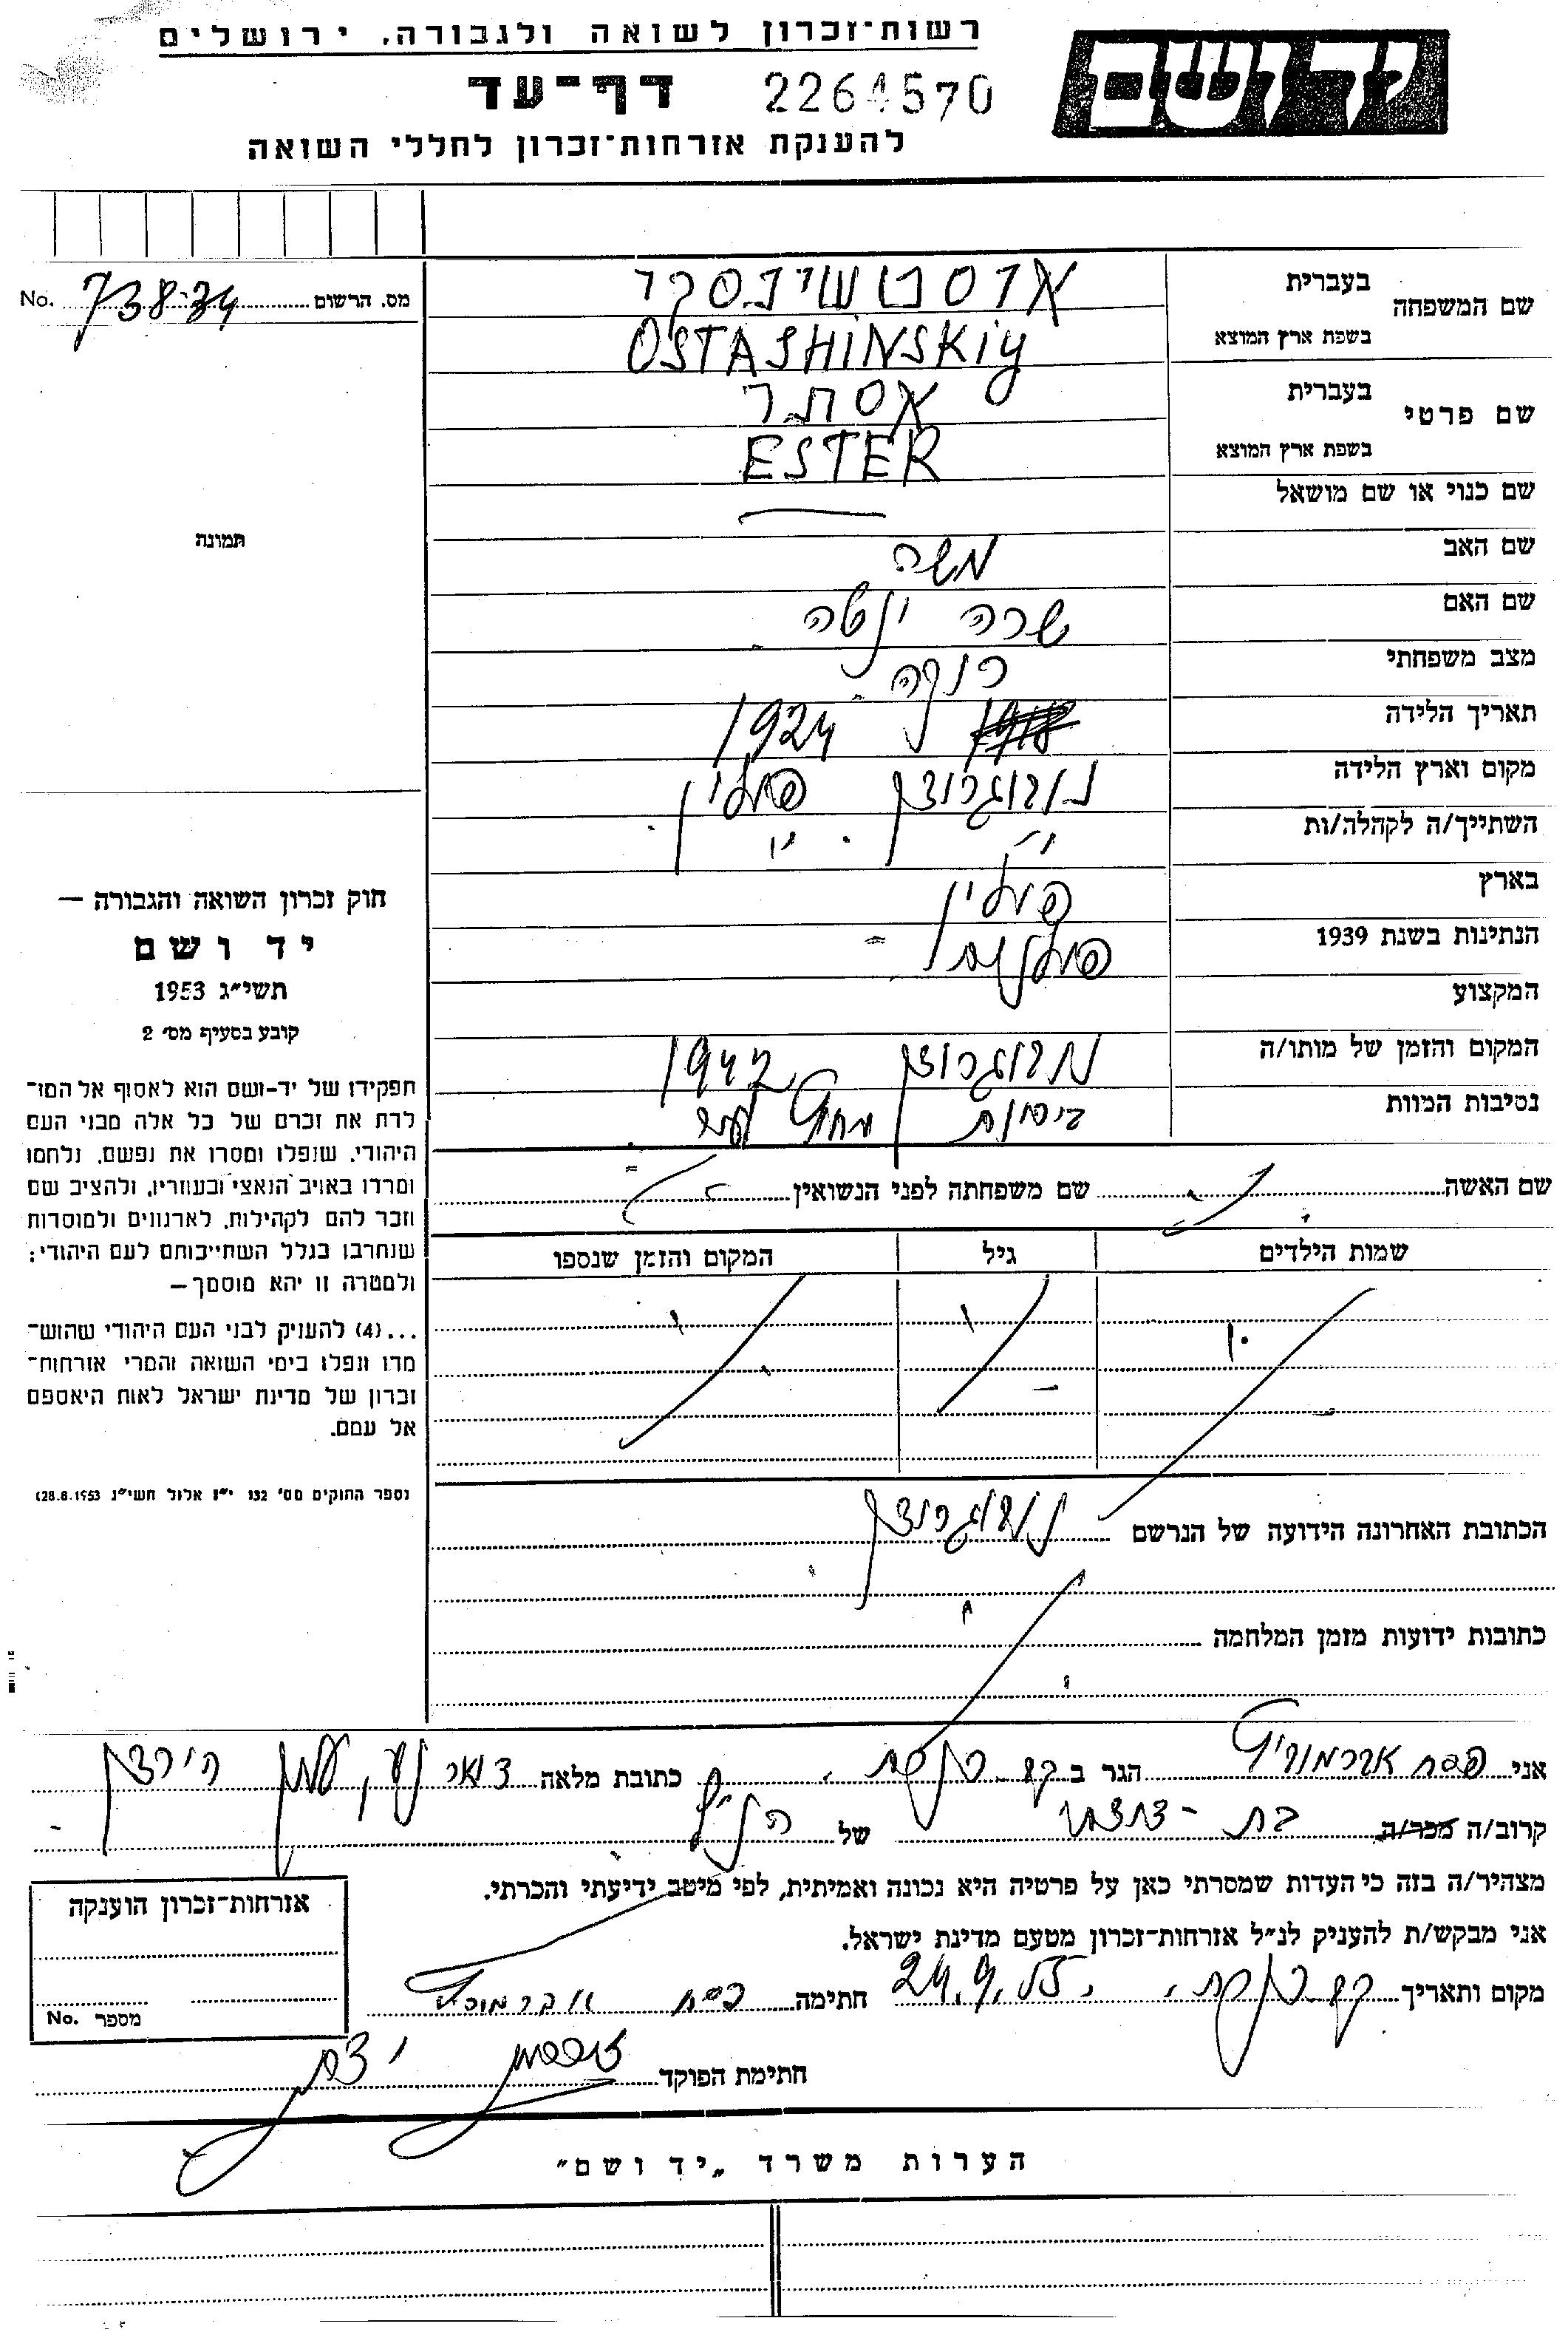 רשות־זכרון לשואה ולגבורה, ירושלים
דף־עד 2264570
להענקת אזרחות־זכרון לחללי השואה
ידושם
מס. הרשום 73834 No.
תמונה
שם המשפחה
בעברית אוסטשינסקי
בשפת ארץ המוצא OSTASHINSKiy
שם פרטי
בעברית אסתר
בשפת ארץ המוצא ESTER
שם כנוי או שם מושאל —
שם האב משה
שם האם שרה יטה
מצב משפחתי רוקה
תאריך הלידה 1924
מקום וארץ הלידה נובוגרודק פולין
השתייך/ה לקהלה/ות
בארץ פולין
הנתינות בשנת 1939 פולנית
המקצוע
המקום והזמן של מותו/ה נובוגרודק 1942
נסיבות המוות
שם האשה
שם משפחתה לפני הנשואין
שמות הילדים גיל המקום והזמן שנספו
הכתובת האחרונה הידועה של הנרשם נובוגרודק
כתובות ידועות מזמן המלחמה
חוק זכרון השואה והגבורה —
יד ושם
תשי״ג 1953
קובע בסעיף מס׳ 2
תפקידו של יד-ושם הוא לאסוף אל המו־
לדת את זכרם של כל אלה מבני העם
היהודי, שנפלו ומסרו את נפשם, נלחמו
ומרדו באויב הנאצי ובעוזריו, ולהציב שם
וזכר להם לקהילות, לארגונים ולמוסדות
שנחרבו בגלל השתייכותם לעם היהודי;
ולמטרה זו יהא מוסמך —
...(4) להעניק לבני העם היהודי שהוש־
מדו ונפלו בימי השואה והמרי אזרחות־
זכרון של מדינת ישראל לאות היאספם
אל עמם.
(ספר החוקים מס׳ 132 י״ז אלול תשי״ג 28.8.1953)
אני פסח אברמוביץ הגר ב כתובת מלאה דואר נע, עמק חירדן
קרוב/ה מכר/ה בת - דודתי של הנ״ל
מצהיר/ה בזה כי העדות שמסרתי כאן על פרטיה היא נכונה ואמיתית, לפי מיטב ידיעתי והכרתי.
אני מבקש/ת להעניק לנ״ל אזרחות־זכרון מטעם מדינת ישראל.
מקום ותאריך 24.9.55 חתימה פסח אברמוביץ
חתימת הפוקד
אזרחות־זכרון הוענקה
מספר No.
הערות משרד „יד ושם״